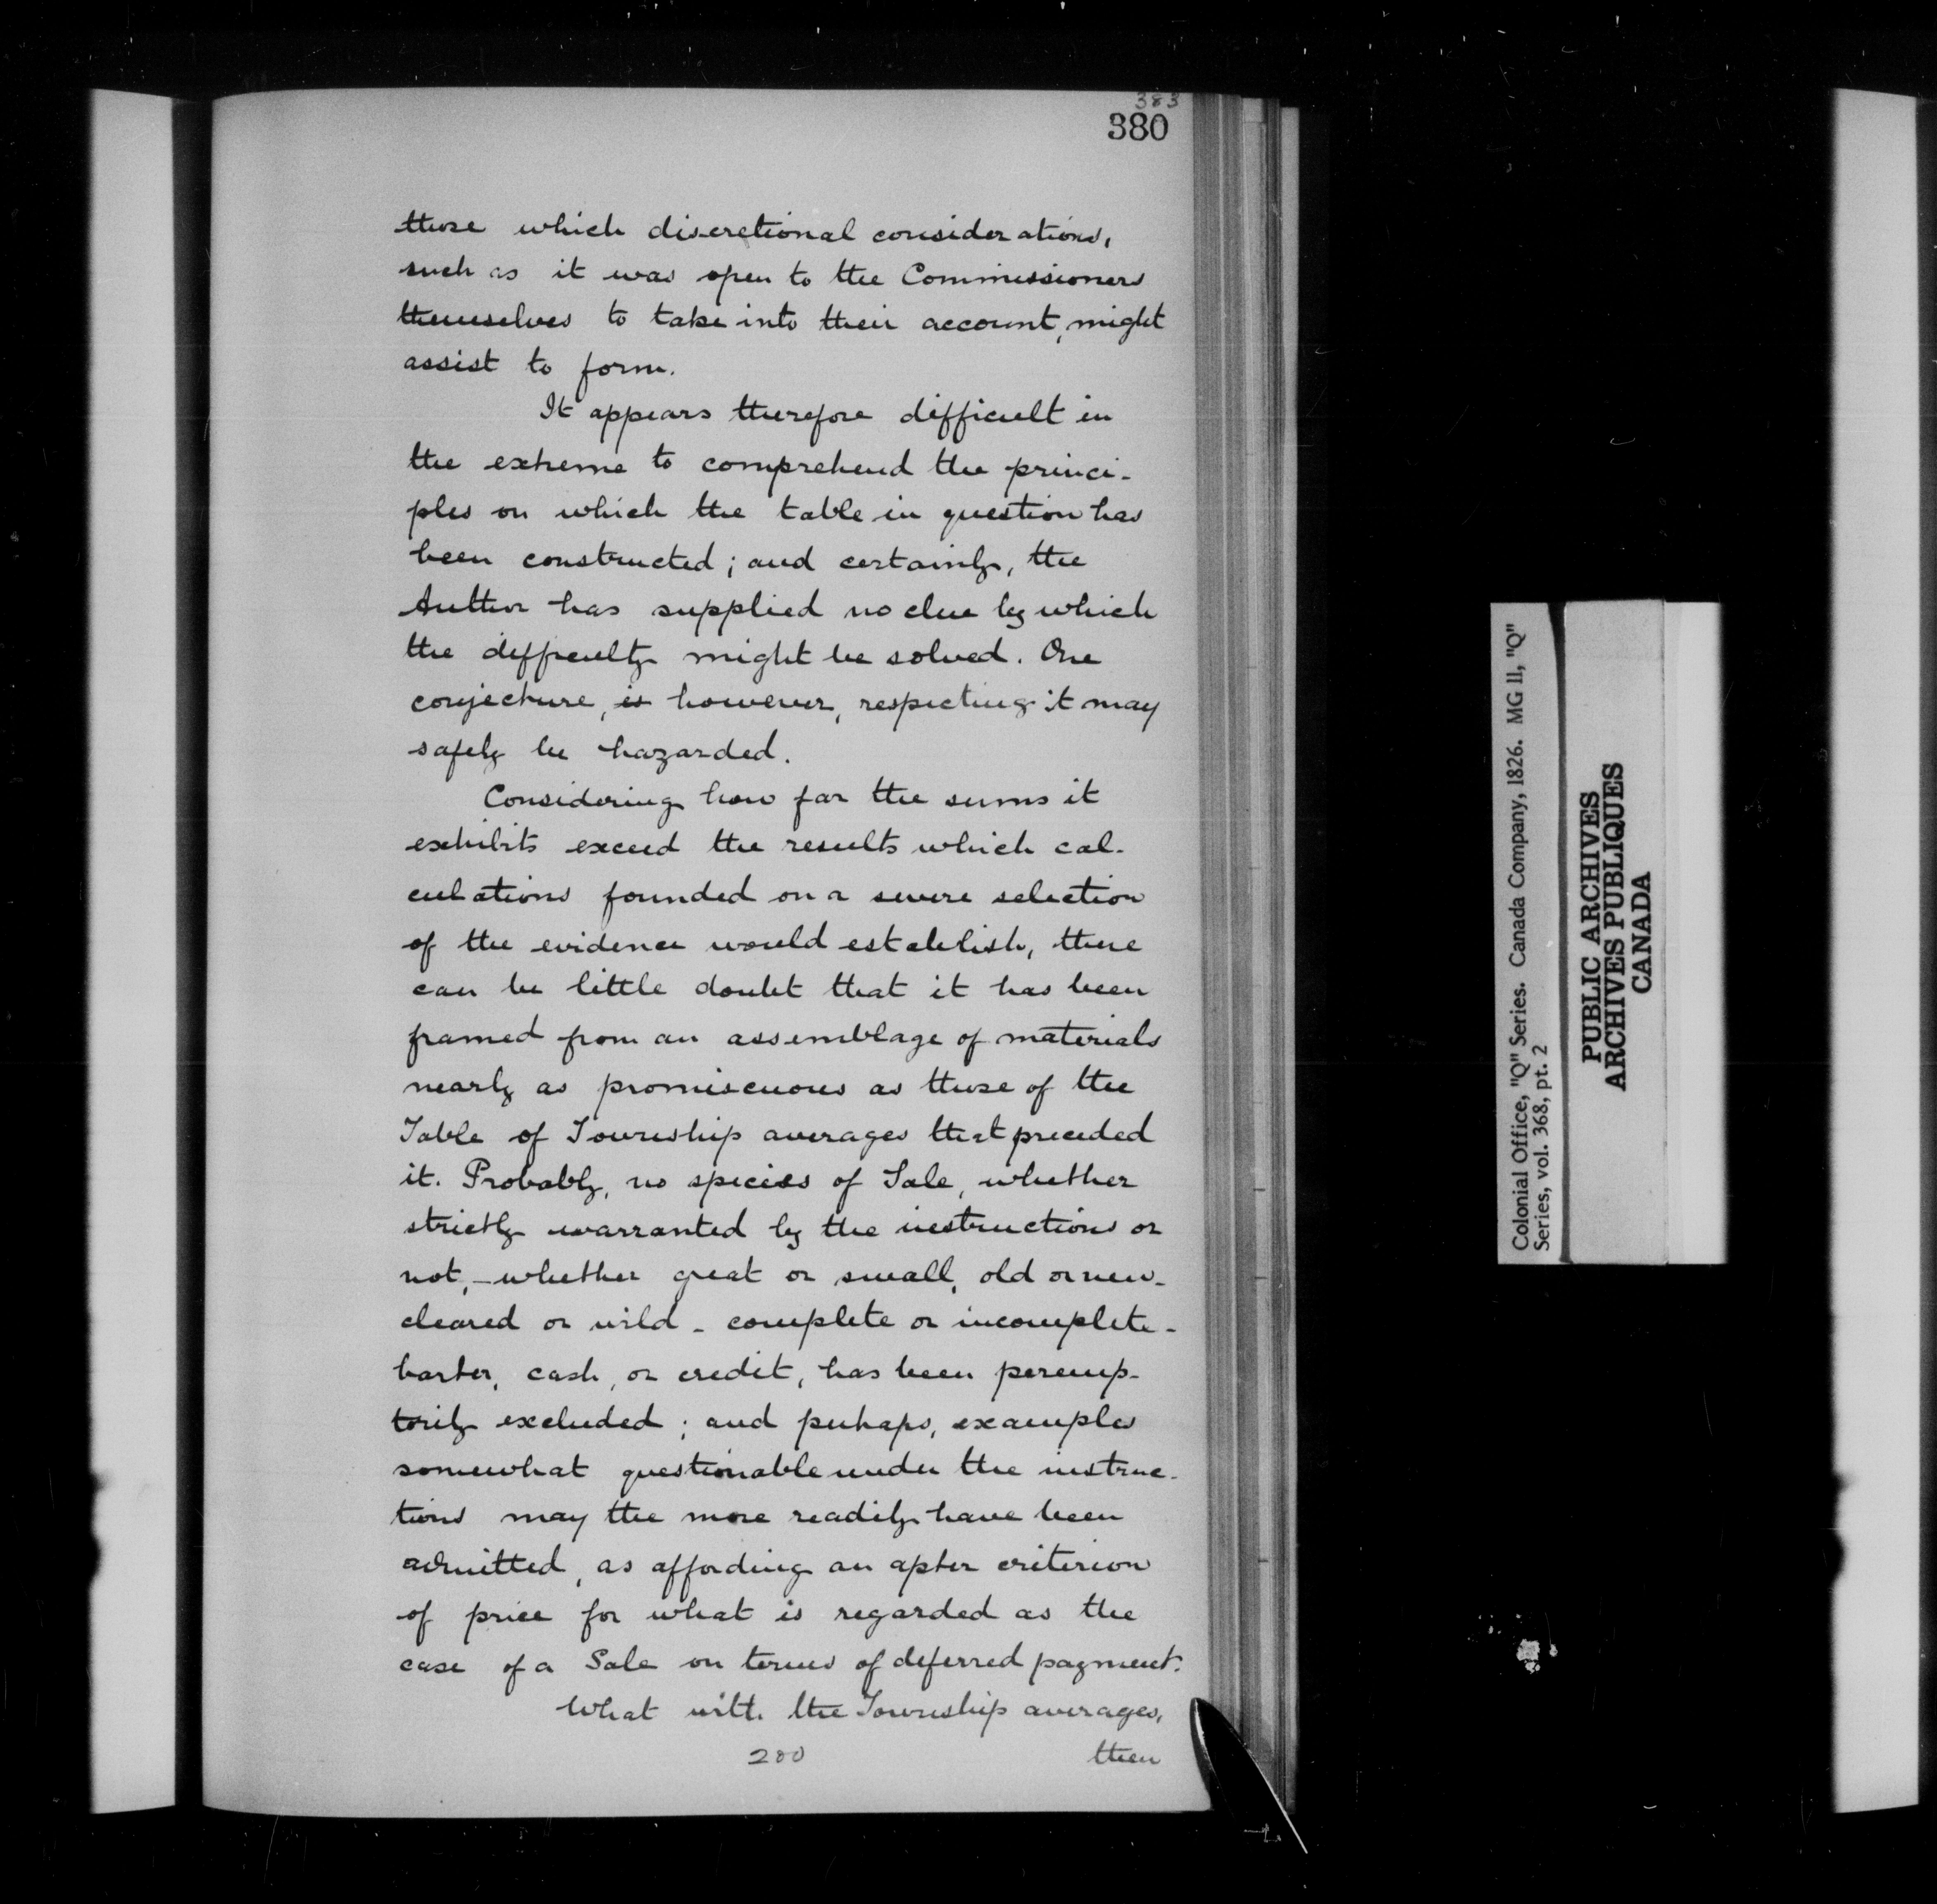 383
380
those which discretional considerations,
such as it was open to the Commissioners
themselves to take into their account, might
assist to form.
It appears therefore difficult in
the extreme to comprehend the princi-
ples on which the table in question has
been constructed; and certainly, the
Author has supplied no clue by which
the difficulty might be solved. One
conjecture, is however, respecting it may
safely be hazarded.
Considering how far the sums it
exhibits exceed the results which cal-
culations founded on a severe selection
of the evidence would establish, there
can be little doubt that it has been
framed from an assemblage of materials
nearly as promiscuous as those of the
Table of Township averages that preceded
it. Probably, no species of Sale, whether
strictly warranted by the instructions or
not, - whether great or small, old or new -
cleared or wild - complete or incomplete -
barter, cash, or credit, has been peremp-
torily excluded; and perhaps, examples
somewhat questionable under the instruc-
tions may the more readily have been
admitted, as affording an apter criterion
of price for what is regarded as the
case of a Sale on terms of deferred payment.
What with the Township averages,
280
then
Colonial Office, "Q" Series. Canada Company, 1826. MG 11, "Q"
Series, vol. 368, pt. 2
PUBLIC ARCHIVES
ARCHIVES PUBLIQUES
CANADA